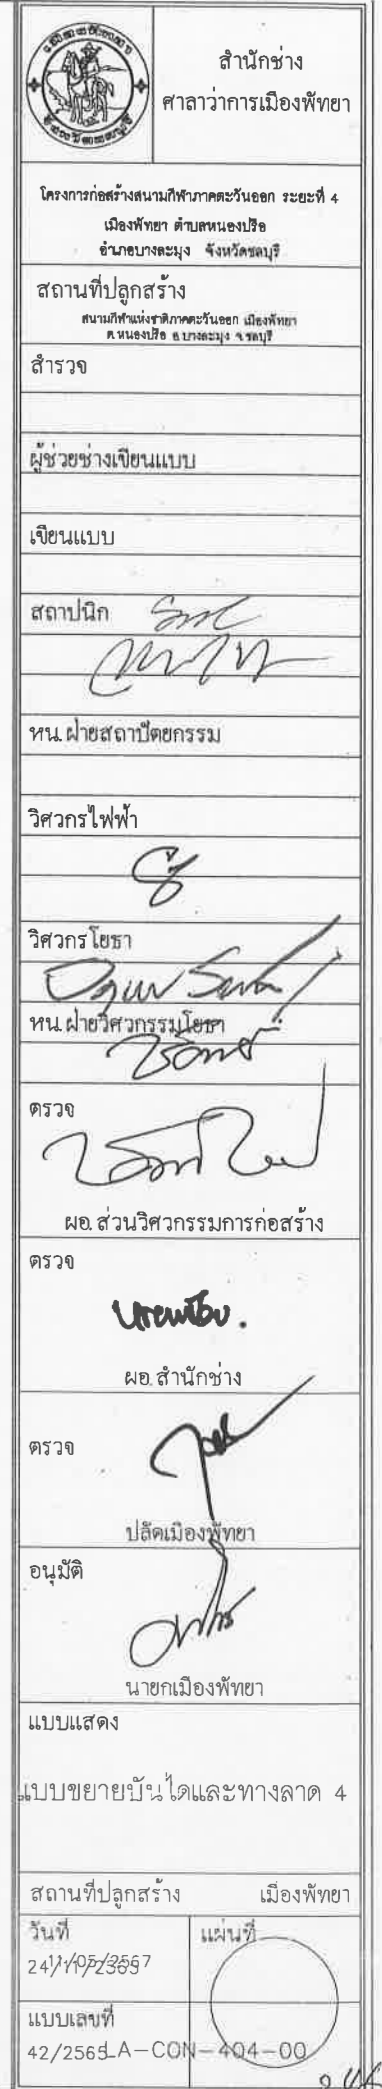 สำนักช่าง
ศาลาว่าการเมืองพัทยา
โครงการก่อสร้างสนามกีฬาภาคตะวันออก ระยะที่ 4
เมืองพัทยา ตำบลหนองปรือ
อำเภอบางละมุง จังหวัดชลบุรี
สถานที่ปลูกสร้าง
สนามกีฬาแห่งชาติภาคตะวันออก เมืองพัทยา
ต.หนองปรือ อ.บางละมุง จ.ชลบุรี
สำรวจ
ผู้ช่วยช่างเขียนแบบ
เขียนแบบ
สถาปนิก
หน.ฝ่ายสถาปัตยกรรม
วิศวกรไฟฟ้า
วิศวกรโยธา
หน.ฝ่ายวิศวกรรมโยธา
ตรวจ
ผอ.ส่วนวิศวกรรมการก่อสร้าง
ตรวจ
ผอ.สำนักช่าง
ตรวจ
ปลัดเมืองพัทยา
อนุมัติ
นายกเมืองพัทยา
แบบแสดง
แบบขยายบันไดและทางลาด 4
สถานที่ปลูกสร้าง เมืองพัทยา
วันที่
แผ่นที่
แบบเลขที่
42/2565 LA-CON-404-00